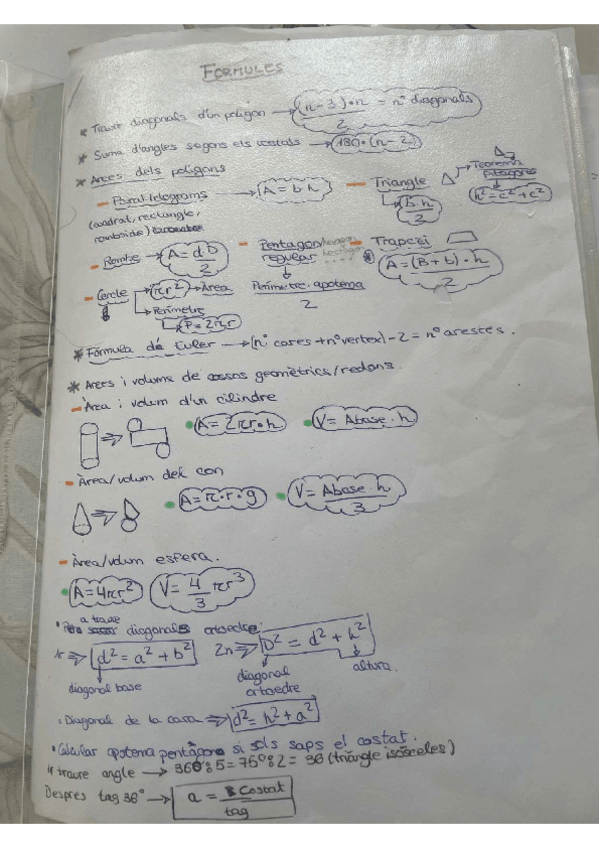 FORMULES
* Traure diagonals d'un poligon → (n-3)·n / 2 = nº diagonals
* Suma d'angles segons els costats → 180·(n-2)
* Arees dels poligons
- Paral·lelograms → A = b·h
(quadrat, rectangle,
romboide)
- Triangle → B·h / 2
Teorema Pitagores
h² = c² + c²
- Rombe → A = d·D / 2
- Pentagon regular
Perimetre·apotema / 2
- Trapezi
A = (B + b)·h / 2
- Cercle → πr² → Area
→ Perimetre
→ P = 2πr
* Fórmula de Euler → (nº cares + nº vertex) - 2 = nº arestes.
* Arees i volums de cossos geomètrics/redons.
- Àrea i volum d'un cilindre
A = 2πr·h V = Abase · h
- Àrea/volum del con
A = π·r·g V = Abase · h / 3
- Àrea/volum esfera.
A = 4πr² V = 4/3 πr³
a traure
diagonals ortoedre:
1r ⇒ d² = a² + b² 2n ⇒ D² = d² + h²
diagonal base
diagonal ortoedre
altura.
Diagonal de la cara ⇒ d² = h² + a²
• Calcular apotema pentàgono si sols saps el costat.
1r traure angle → 360º:5 = 75º:2 = 36 (triàngle isósceles)
Despres tag 36º → a = Costat / tag